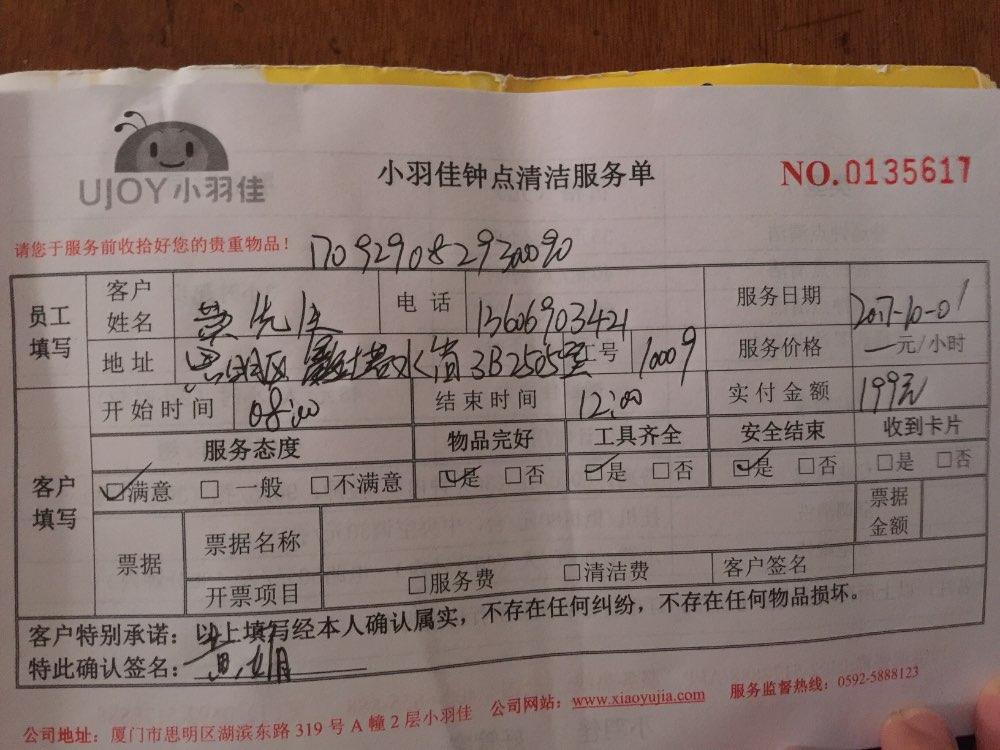 UJOY小羽佳
小羽佳钟点清洁服务单
NO.0135617
请您于服务前收拾好您的贵重物品！
170929082930090
员工填写 客户姓名 黄先生 电话 13606903421 服务日期 2017-10-01
地址 思明区 水岸3B2505室 工号 10009 服务价格 一元/小时
客户填写 开始时间 08:00 结束时间 12:00 实付金额 199元
服务态度 物品完好 工具齐全 安全结束 收到卡片
☑满意 □一般 □不满意 ☑是 □否 ☑是 □否 ☑是 □否 □是 □否
票据 票据名称 票据金额
开票项目 □服务费 □清洁费 客户签名
客户特别承诺：以上填写经本人确认属实，不存在任何纠纷，不存在任何物品损坏。
特此确认签名：
公司地址：厦门市思明区湖滨东路319号A幢2层小羽佳 公司网站：www.xiaoyujia.com 服务监督热线：0592-5888123